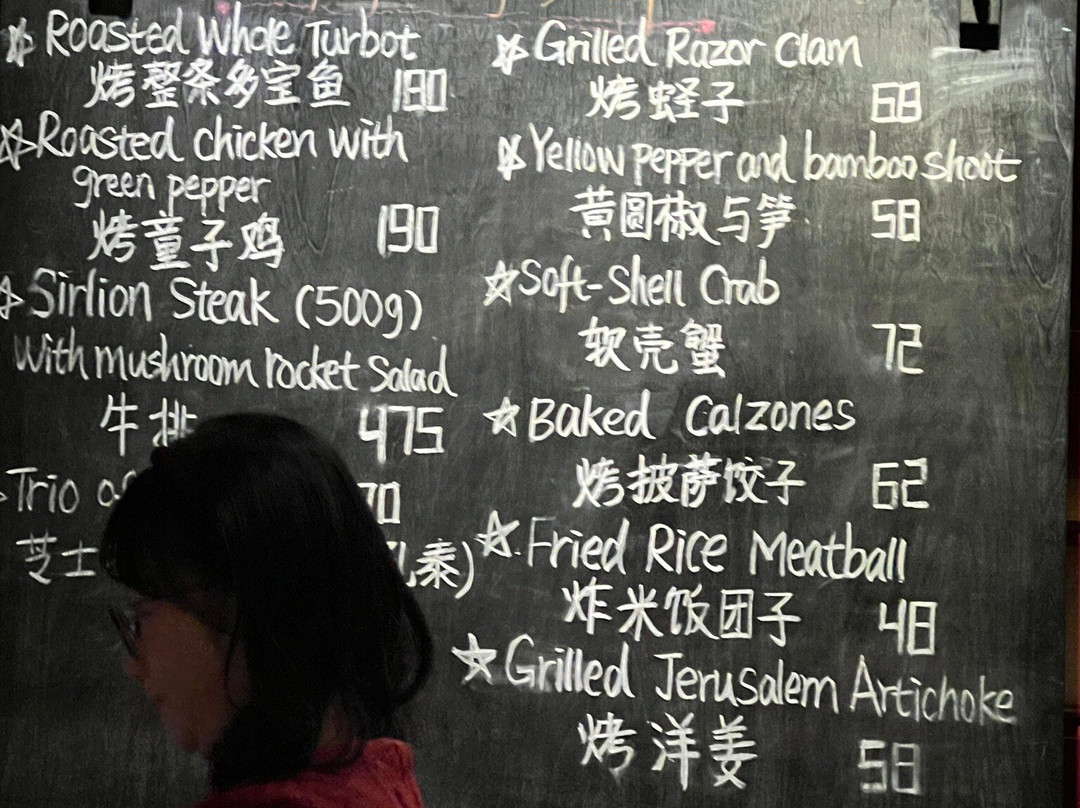 Roasted Whole Turbot
烤整条多宝鱼 180
Roasted chicken with
green pepper
烤童子鸡 190
Sirlion Steak (500g)
with mushroom rocket Salad
牛排 475
Trio of 70
芝士 泰)
Grilled Razor Clam
烤蛏子 68
Yellow pepper and bamboo shoot
黄圆椒与笋 58
Soft-Shell Crab
软壳蟹 72
Baked Calzones
烤披萨饺子 62
Fried Rice Meatball
炸米饭团子 48
Grilled Jerusalem Artichoke
烤洋姜 58